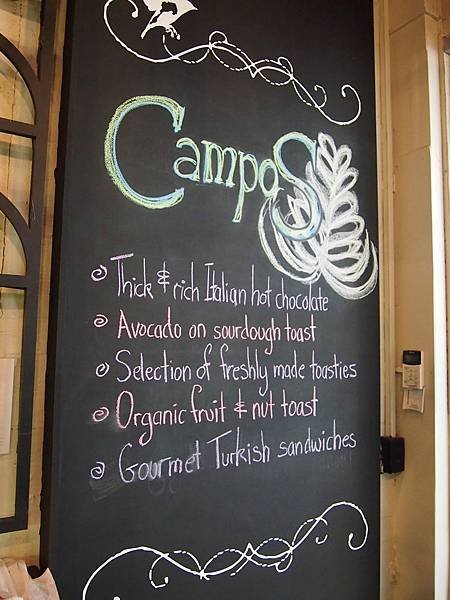 CampoS
Thick & rich Italian hot chocolate
Avocado on sourdough toast
Selection of freshly made toasties
Organic fruit & nut toast
Gourmet Turkish sandwiches